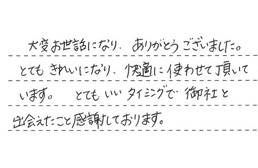 大変お世話になり、ありがとうございました。
とてもきれいになり、快適に使わせて頂いて
います。 とてもいいタイミングで御社と
出会えたこと感謝しております。